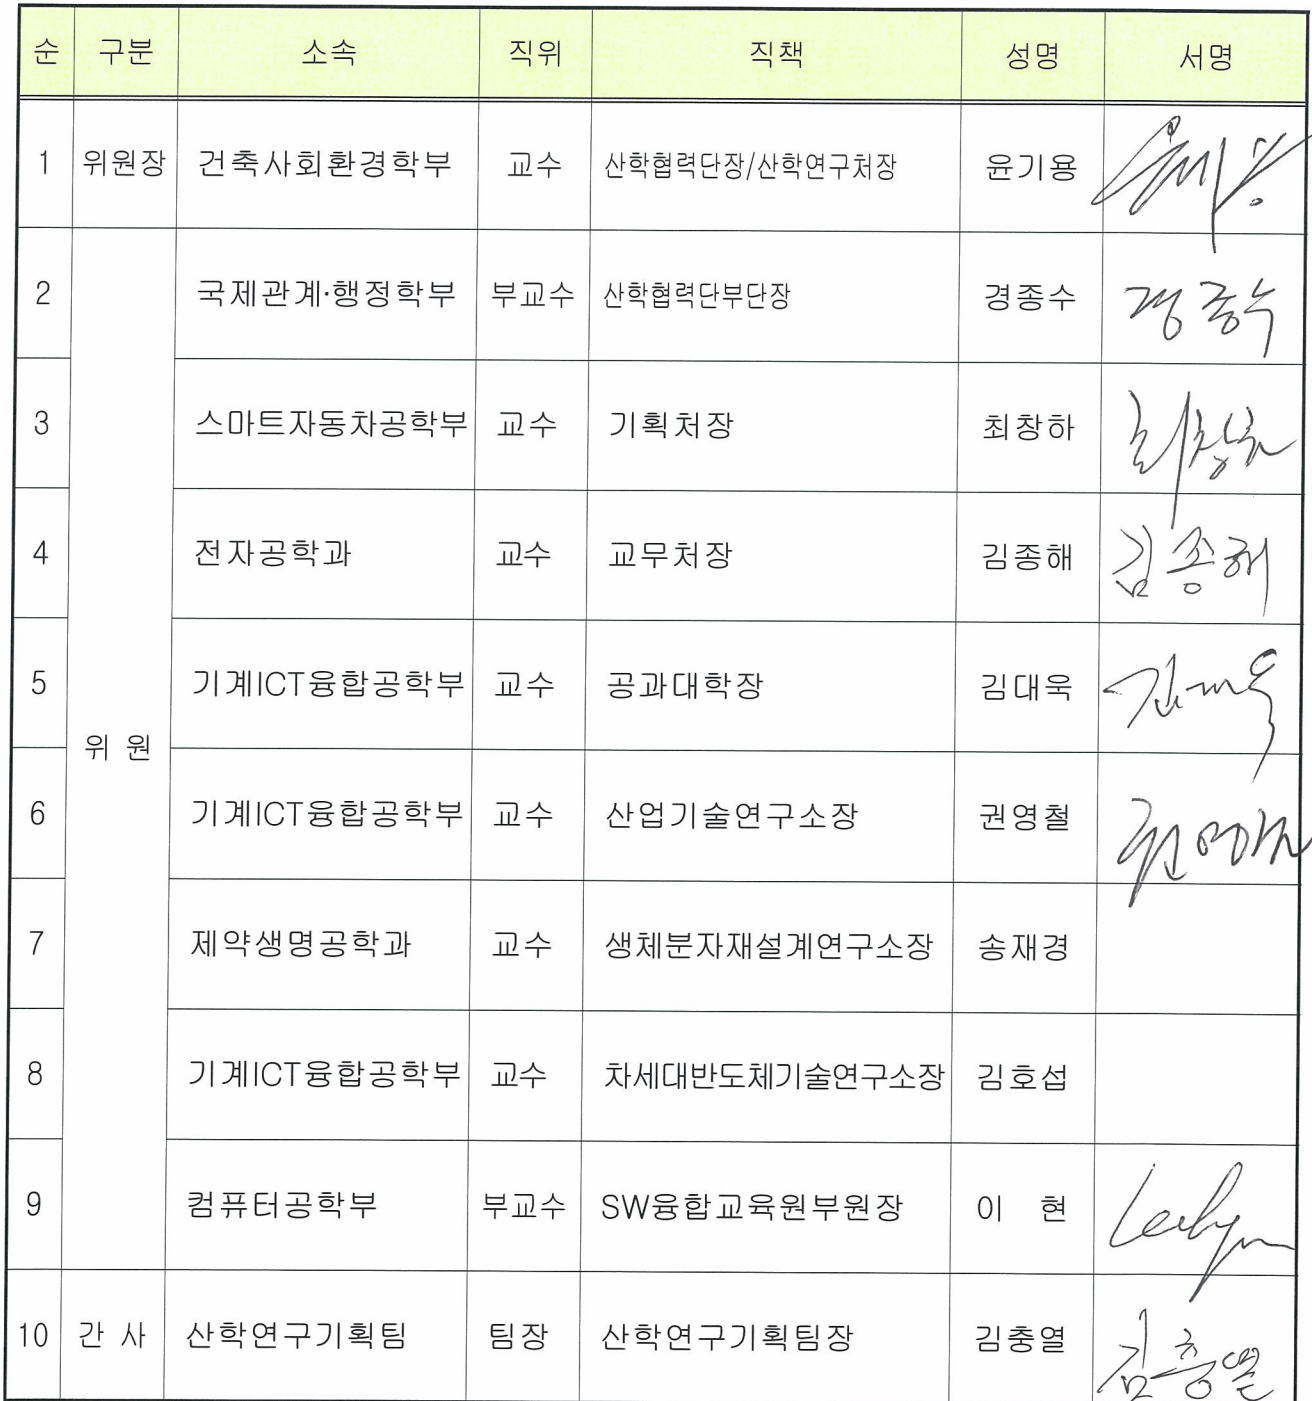 순 구분 소속 직위 직책 성명 서명
1 위원장 건축사회환경학부 교수 산학협력단장/산학연구처장 윤기용
2 국제관계·행정학부 부교수 산학협력단부단장 경종수 경종수
3 스마트자동차공학부 교수 기획처장 최창하 최창하
4 전자공학과 교수 교무처장 김종해 김종해
5 기계ICT융합공학부 교수 공과대학장 김대욱
위 원
6 기계ICT융합공학부 교수 산업기술연구소장 권영철
7 제약생명공학과 교수 생체분자재설계연구소장 송재경
8 기계ICT융합공학부 교수 차세대반도체기술연구소장 김호섭
9 컴퓨터공학부 부교수 SW융합교육원부원장 이 현
10 간 사 산학연구기획팀 팀장 산학연구기획팀장 김충열 김충열